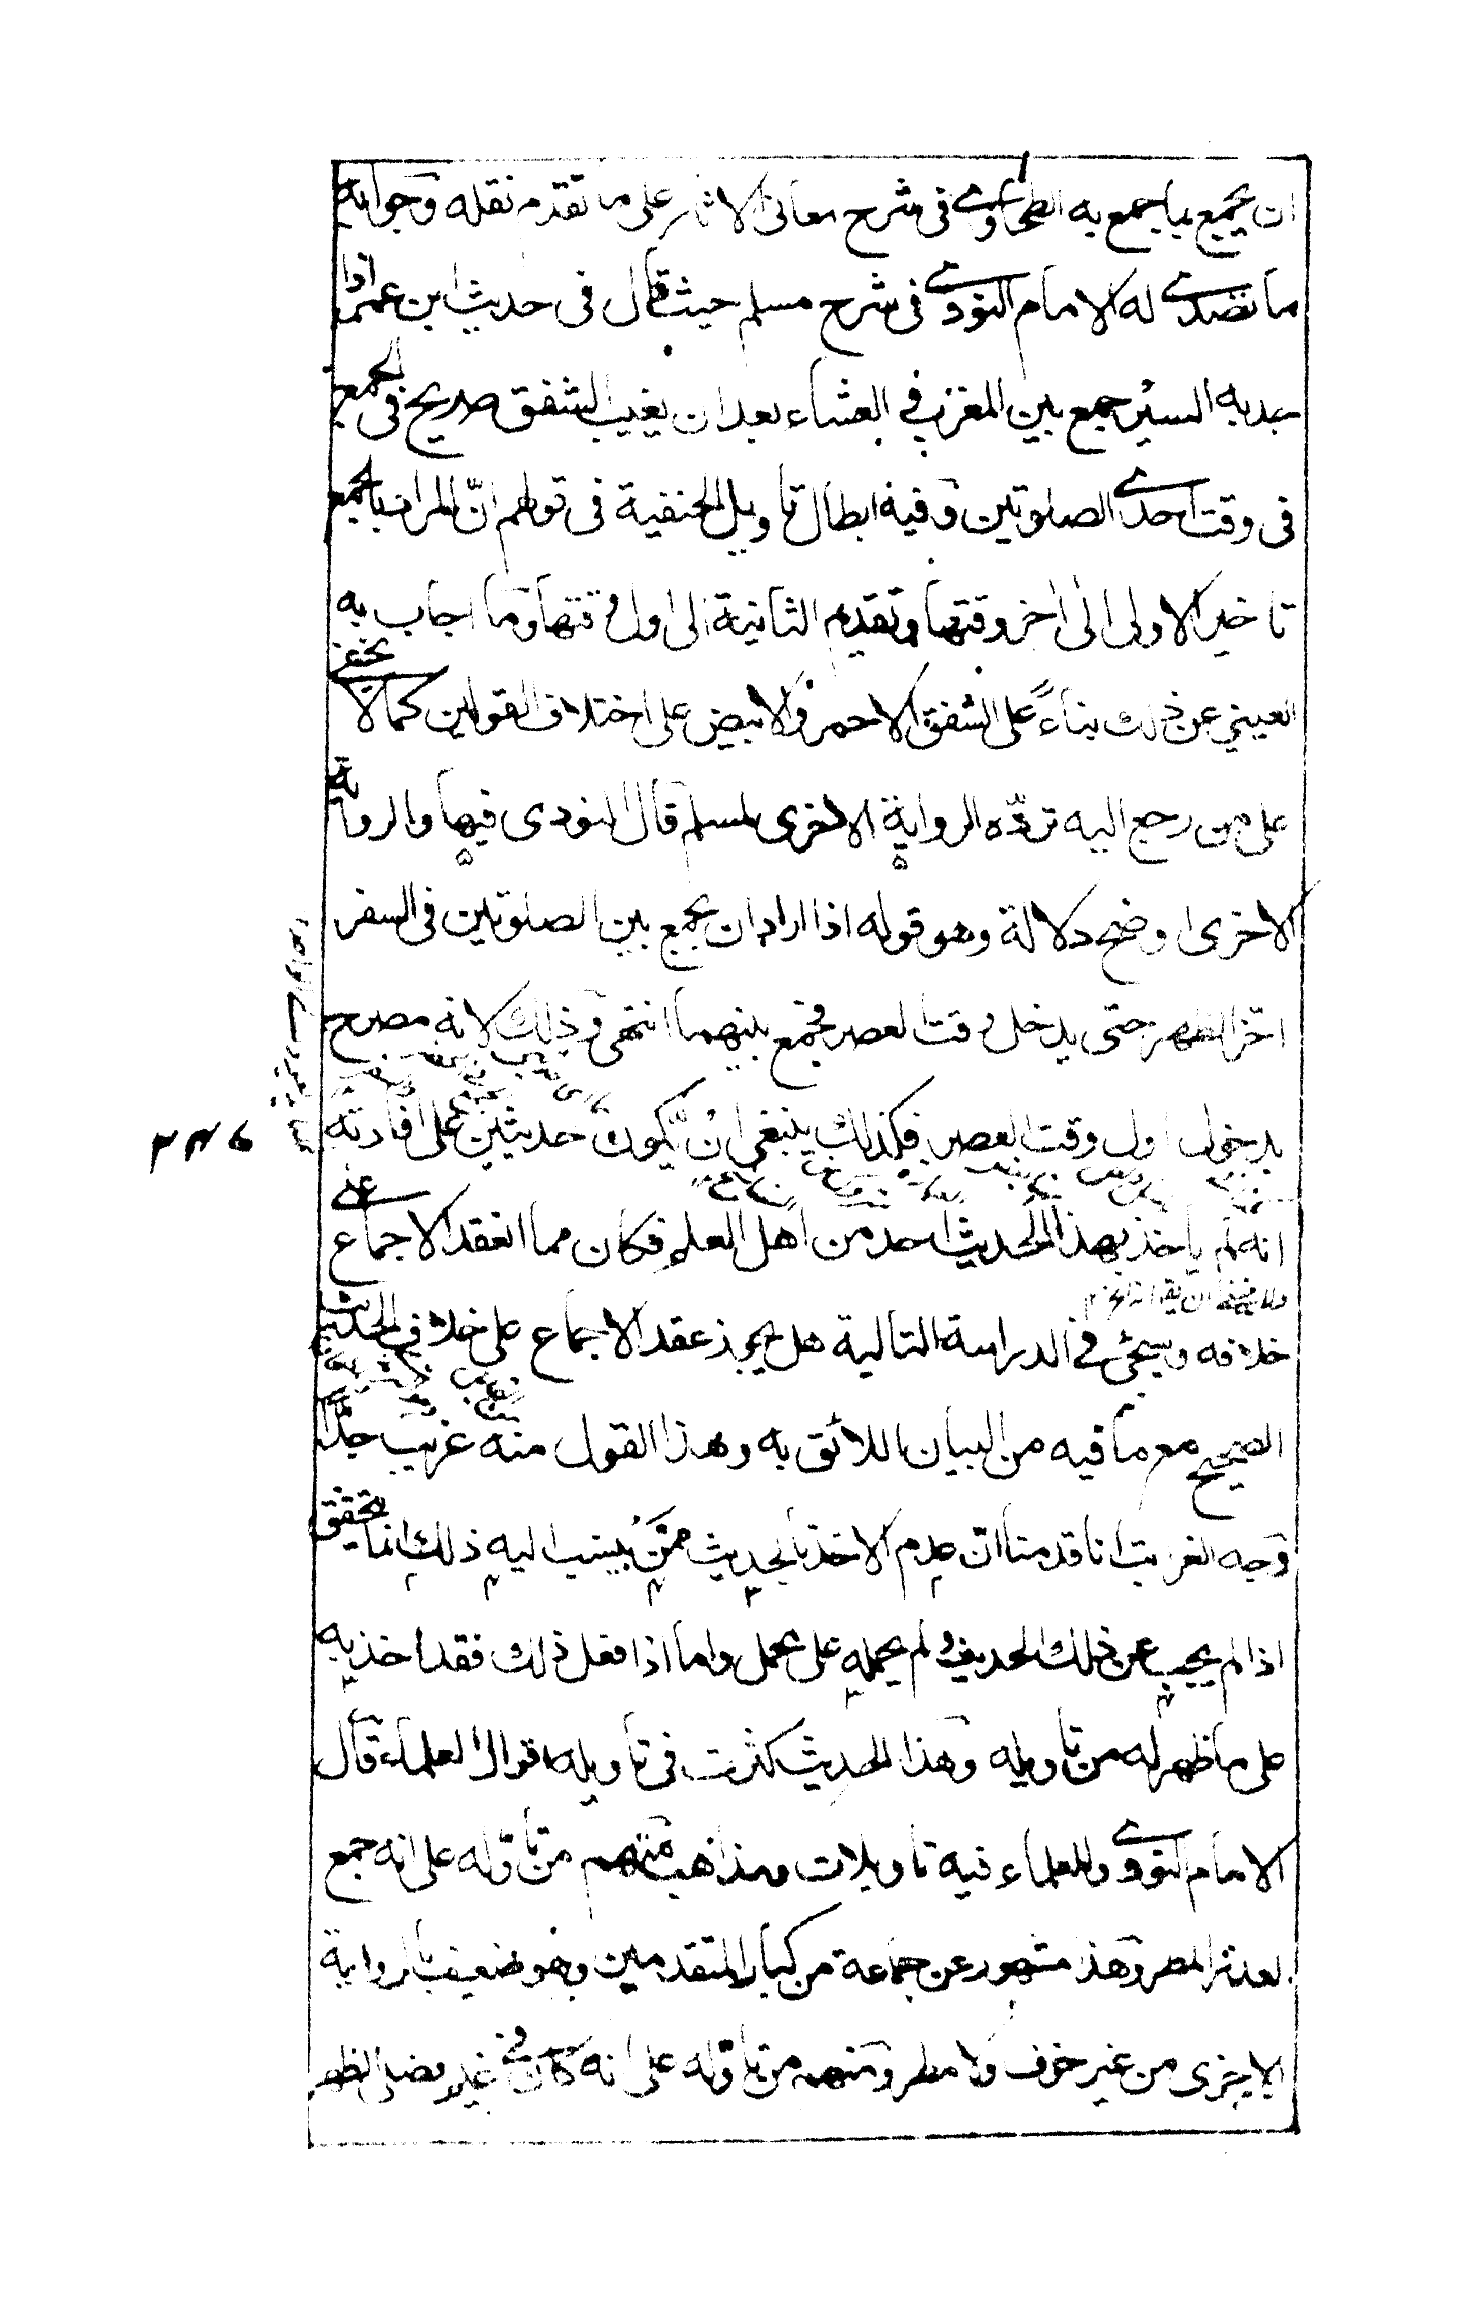 ان يجمع بما جمع به الطحاوى فى شرح معانى الاثار على ما تقدم نقله وجوابه
ما تصدى له الامام النووى فى شرح مسلم حيث قال فى حديث ابن عمر اذا
جد به السير جمع بين المغرب و العشاء بعد ان يغيب الشفق صريح فى الجمع
فى وقت احدى الصلوتين وفيه ابطال تاويل الحنفية فى قولهم انّ المراد بالجمع
تاخير الاولى الى اخر وقتها وتقديم الثانية الى اول وقتها وما اجاب به
العينى عن ذلك بناءً على الشفق الاحمر والابيض على اختلاف القولين كما لا يخفى
على من رجع اليه تردّه الرواية الاخرى لمسلم قال النووى فيها والرواية
الاخرى اوضح دلالة وهو قوله اذا اراد ان يجمع بين الصلوتين فى السفر
اخّر الظهر حتى يدخل وقت العصر فيجمع بينهما انتهى وذلك لانه مصرح
بدخول اول وقت العصر فكذلك ينبغى ان يكون حديثين على افادته
انه لم ياخذ بهذا الحديث احد من اهل العلم فكان مما انعقد الاجماع على
خلافه وسيجئ فى الدراسة التالية هل يجوز عقد الاجماع على خلاف الحديث
الصحيح مع ما فيه من البيان اللائق به وهذا القول منه غريب جدًّا
وجه الغرابت انا قدمنا انّ عدم الاخذ بالحديث ممّن يُنسب اليه ذلك انما يتحقق
اذا لم يجب عن ذلك الحديث ولم يحمله على محمل واما اذا فعل ذلك فقد اخذ به
على ما ظهر له من تاويله وهذا الحديث كثرت فى تاويله اقوال العلماء قال
الامام النووى وللعلماء فيه تاويلات ومذاهب منهم من تاوّله على انه جمع
لعذر المطر وهذا مشهور عن جماعة من كبار المتقدمين وهو ضعيف بالرواية
الاخرى من غير خوف ولا مطر ومنهم من تاوّله على انه كان فى غيم فصلى الظهر
۲۴۶